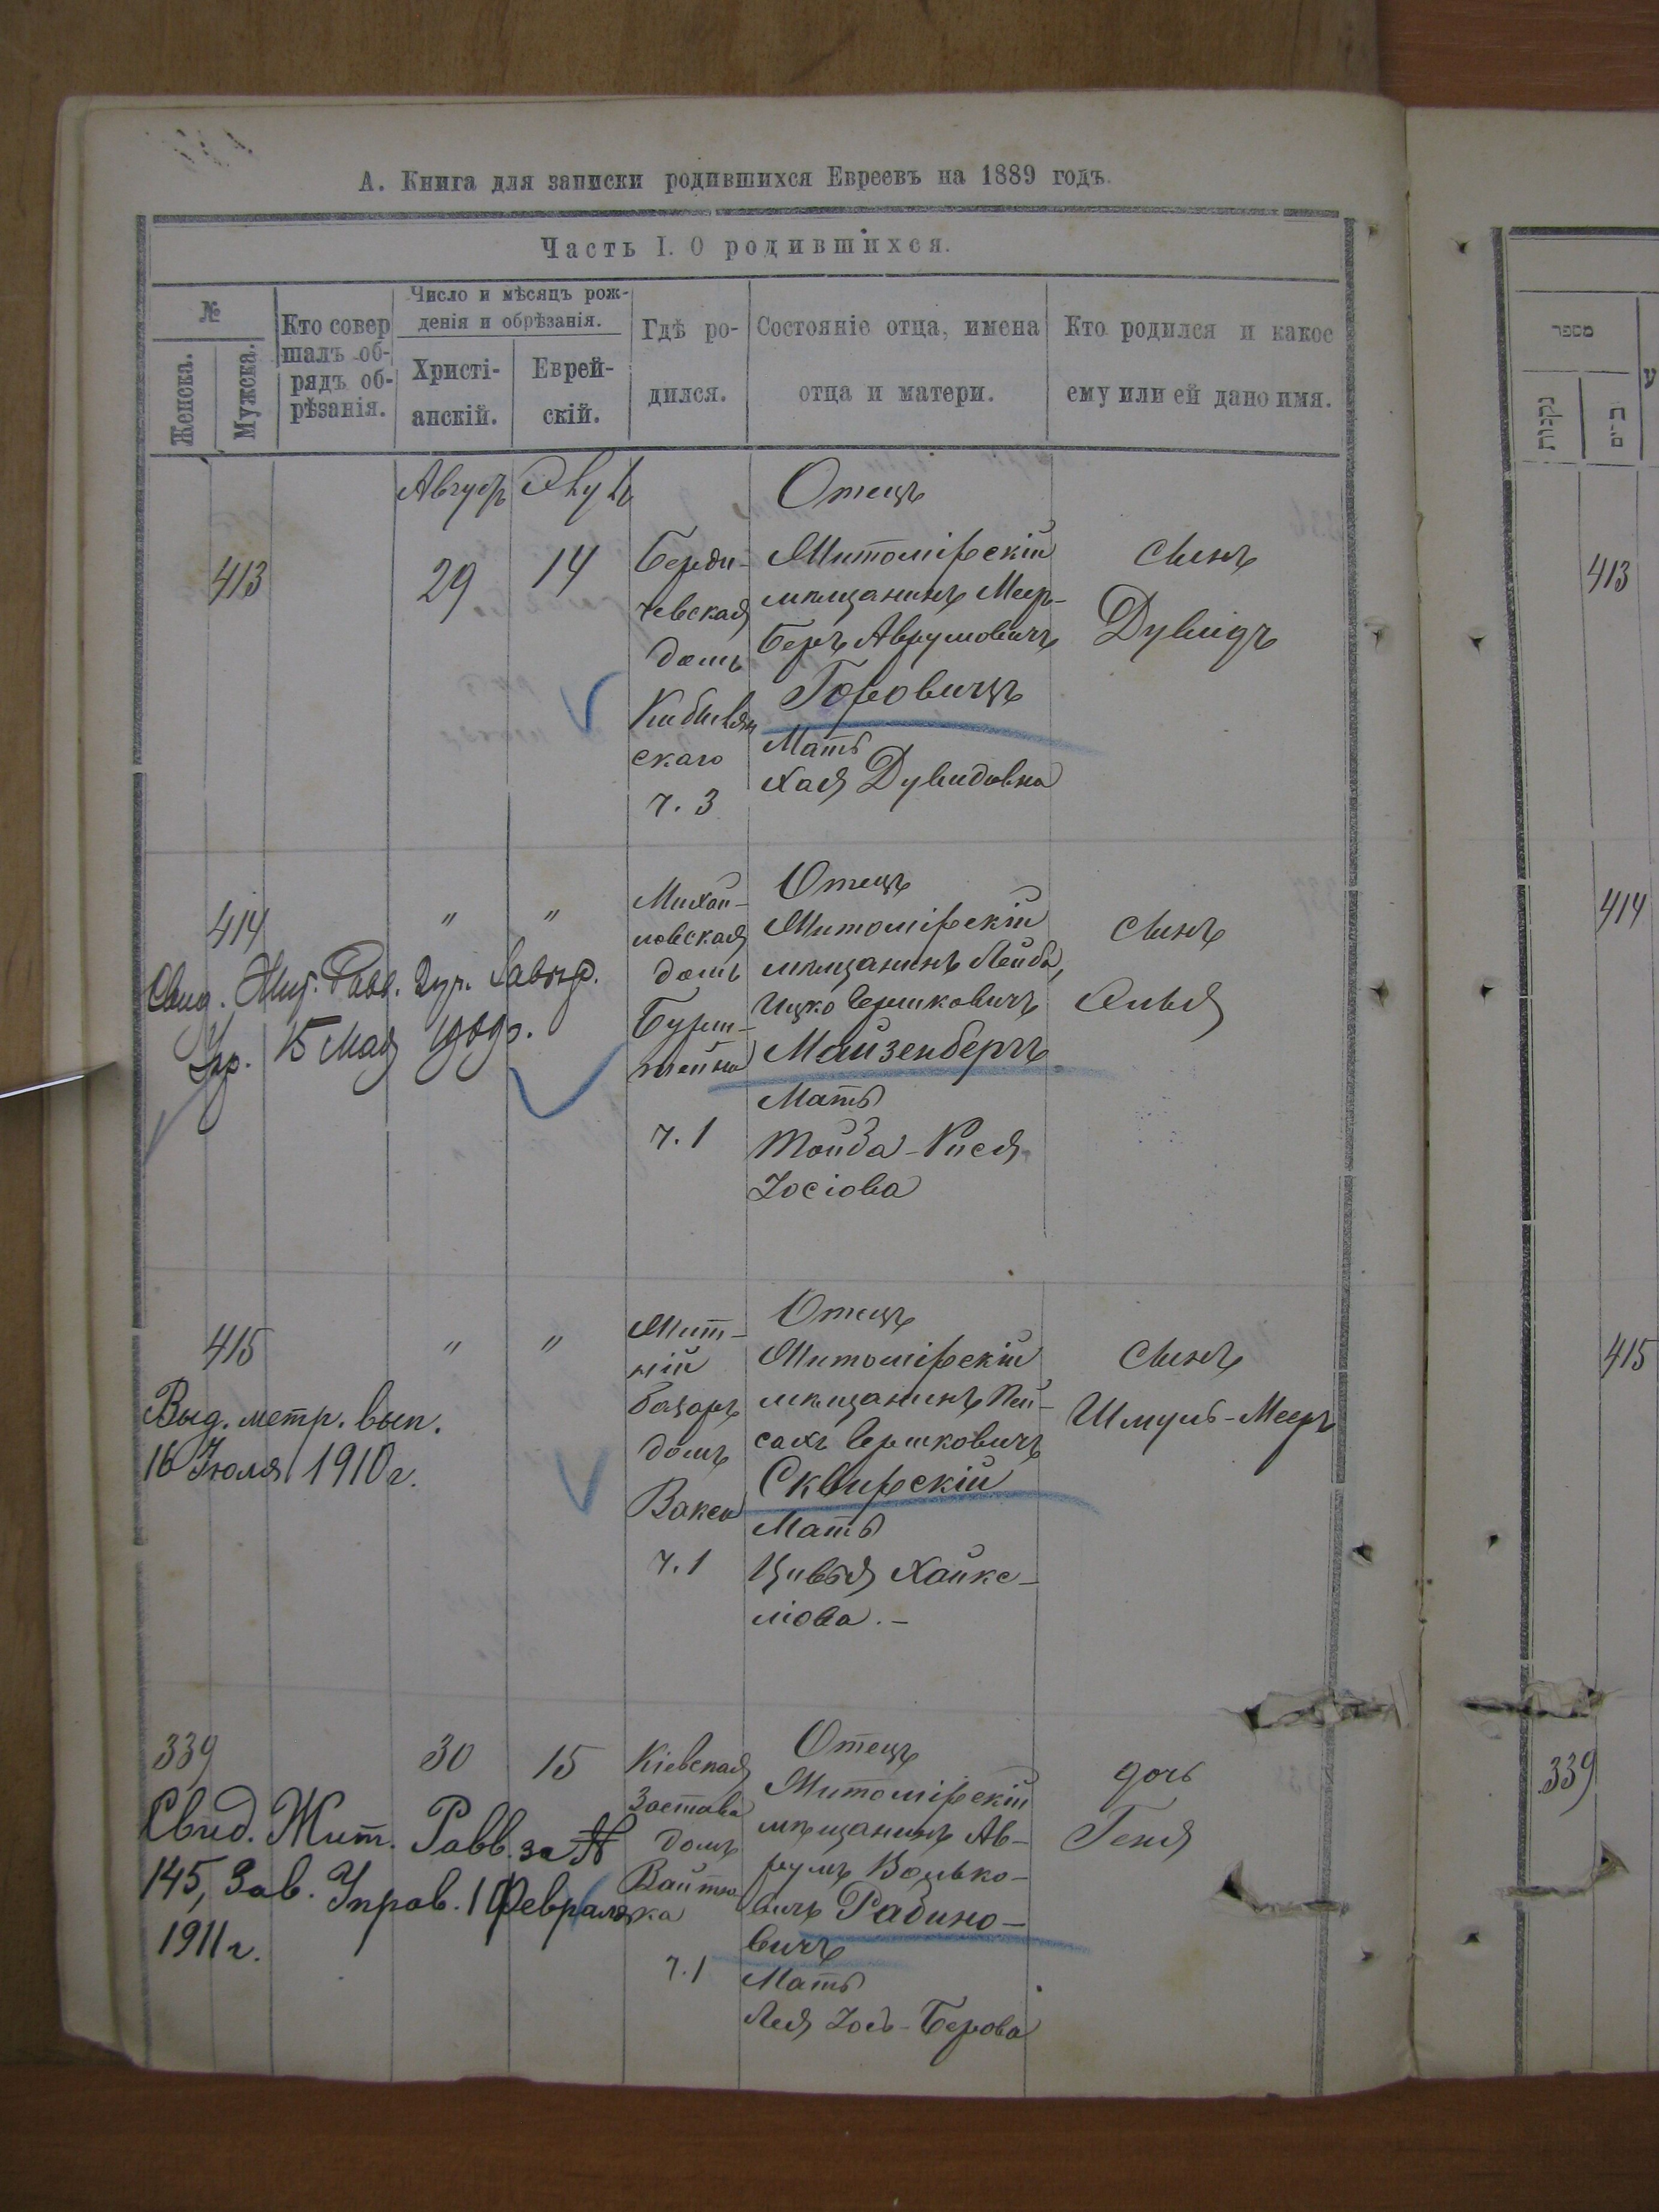 А. Книга для записки родившихся Евреевъ на 1889 годъ.
Часть I. О родившихся.
№
Женска.
Мужска.
Кто совер
шалъ об-
рядъ об-
рѣзанія.
Число и мѣсяцъ рож-
денія и обрѣзанія.
Христі-
анскій.
Еврей-
скій.
Гдѣ ро-
дился.
Состояніе отца, имена
отца и матери.
Кто родился и какое
ему или ей дано имя.
Августъ
413
29
14
Берди-
чевская
домъ
скаго
ч. 3
Отецъ
Житомірскій
мѣщанинъ Меер-
Беръ Аврумовичъ
Горовицъ
Мать
Хая Дувидовна
сынъ
Дувидъ
414
"
"
Свид. Жит. Равв.
Упр. 15 Мая
Михай-
ловская
домъ
Бурш-
тейна
ч. 1
Отецъ
Житомірскій
мѣщанинъ Лейба,
Ицко Гершковичъ
Майзенбергъ
Мать
Тойба-Рися
Іосіова
сынъ
415
"
"
Выд. метр. вып.
16 Іюля 1910 г.
Жит-
ній
базаръ
домъ
Вакса
ч. 1
Отецъ
Житомірскій
мѣщанинъ Пей-
сахъ Гершковичъ
Сквирскій
Мать
Цивья Хайке-
ліова. -
сынъ
Шмуль-Мееръ
339
30
15
Свид. Жит. Равв. за №
145, Зав. Упров. 1 Февраля
1911 г.
Кіевская
Застава
домъ
ч. 1
Отецъ
Житомірскій
мѣщанинъ Ав-
румъ Волько-
вичъ Рабино-
вичъ
Мать
Лея Іось-Берова
дочь
Геня
מספר
נקבות
413
414
415
339